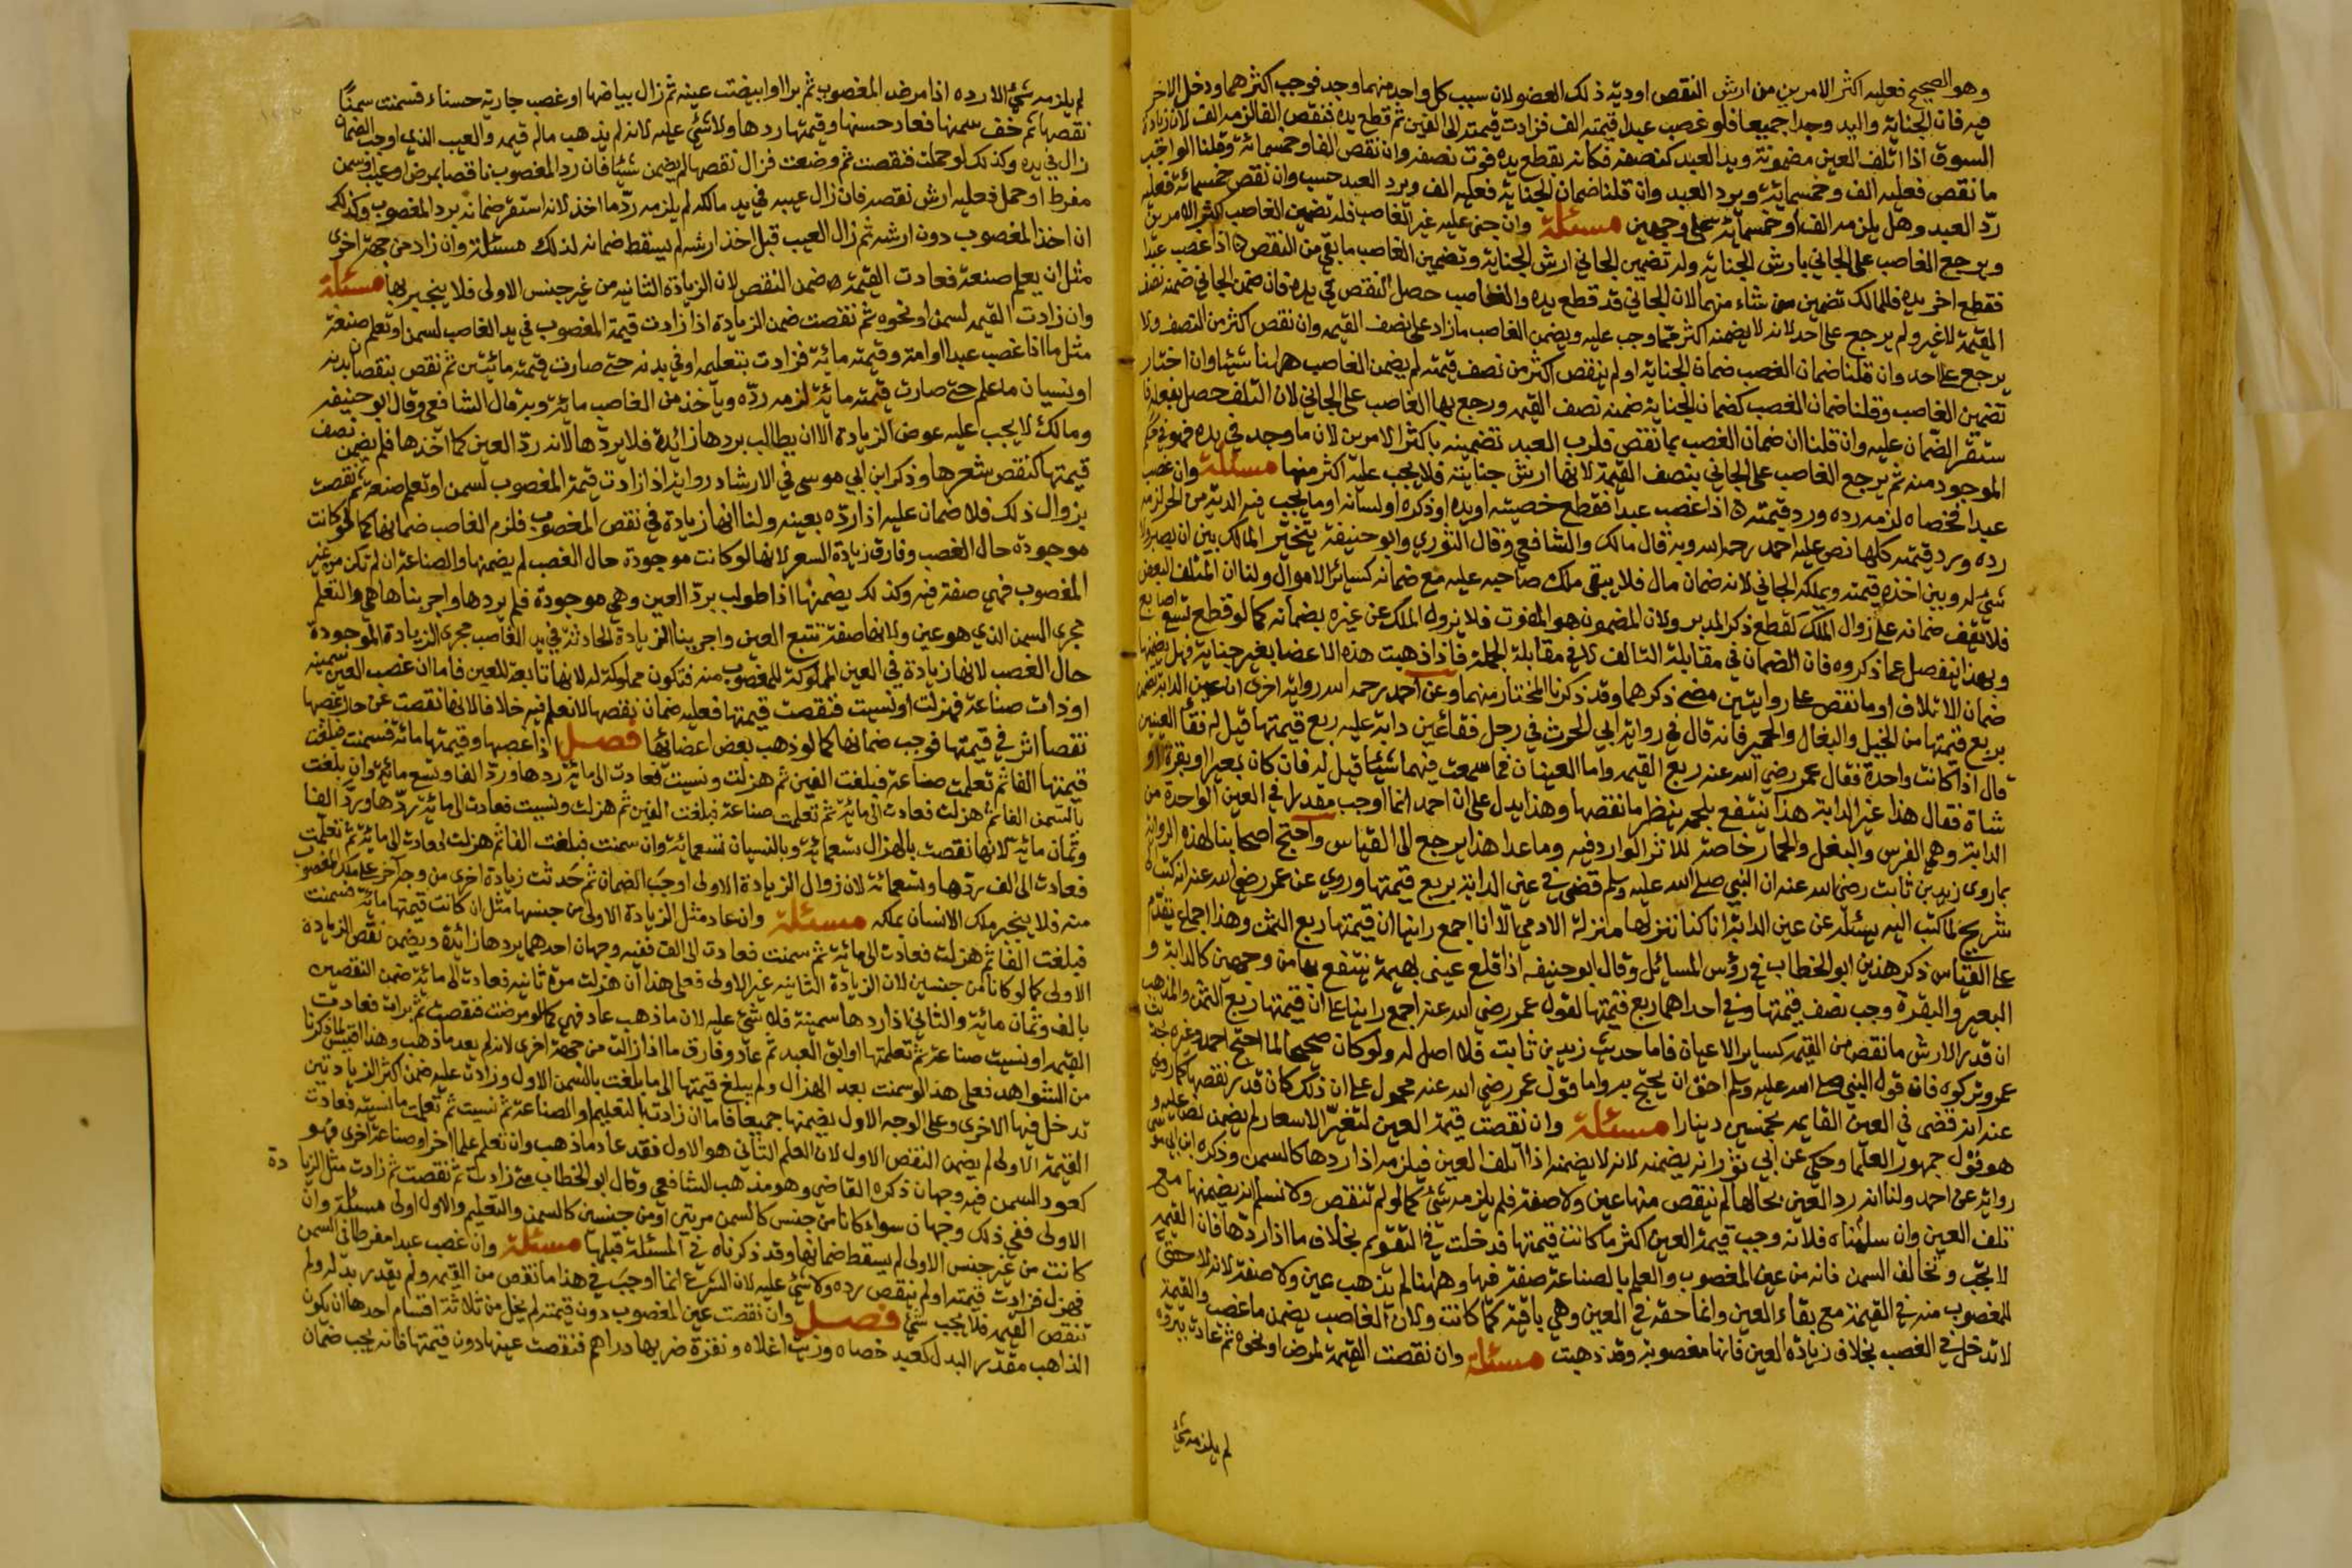 وهو الصحيح فعليه اكثر الامرين من ارش النقص او دية ذلك العضو لان سبب كل واحد منهما وجد فوجب اكثرهما ودخل الاخر
فيه فان الجناية واليد وجدا جميعا فلو غصب عبدا قيمته الف فزادت قيمته الى الفين ثم قطع يده فنقص الفا لزمه الف لان زيادة
السوق اذا اتلف العين مضمونة ويد العبد كنصفه فكانه بقطع يده فوت نصفه وان نقص الفا وخمسمائة وقلنا الواجب
ما نقص فعليه الف وخمسمائة ويرد العبد وان قلنا ضمان الجناية فعليه الف ويرد العبد حسب وان نقص خمسمائة فعليه
ردّ العبد وهل يلزمه الف او خمسمائة على وجهين مسئلة وان جنى عليه غير الغاصب فله تضمين الغاصب اكثر الامرين
ويرجع الغاصب على الجاني بارش الجناية وله تضمين الجاني ارش الجناية وتضمين الغاصب ما بقي من النقص اذا غصب عبدا
فقطع اخر يده فللمالك تضمين من شاء منهما لان الجاني قد قطع يده والغاصب حصل النقص في يده فان ضمن الجاني ضمنه نصف
القيمة لا غير ولم يرجع على احد لانه لا يضمنه اكثر مما وجب عليه ويضمن الغاصب ما زاد على نصف القيمه وان نقص اكثر من النصف ولا
يرجع على احد وان قلنا ضمان الغصب ضمان الجناية او لم ينقص اكثر من نصف قيمته لم يضمن الغاصب ههنا شيئا وان اختار
تضمين الغاصب وقلنا ضمان الغصب كضمان الجناية ضمنه نصف القيمه ورجع بها الغاصب على الجاني لان التلف حصل بفعله فا
ستقر الضمان عليه وان قلنا ان ضمان الغصب بما نقص فلرب العبد تضمينه باكثر الامرين لان ما وجد في يده فهو في حكم
الموجود منه ثم يرجع الغاصب على الجاني بنصف القيمة لانها ارش جنايته فلا يجب عليه اكثر منها مسئلة وان غصب
عبدا فخصاه لزمه رده ورد قيمته اذا غصب عبدا فقطع خصيتيه او يده او ذكره او لسانه او ما يجب فيه الدية من الحر لزمه
رده ورد قيمته كلها نص عليه احمد رحمه الله وبه قال مالك والشافعي وقال الثوري وابو حنيفة يتخير المالك بين ان يصبر ولا
شئ له وبين اخذه قيمته ويملكه الجاني لانه ضمان مال فلا يبقى ملك صاحبه عليه مع ضمانه كسائر الاموال ولنا ان المتلف البعض
فلا يقف ضمانه على زوال الملك كقطع ذكر المدبر ولان المضمون هو المفوت فلا يزول الملك عن غيره بضمانه كما لو قطع تسع اصابع
وبهذا ينفصل عما ذكروه فان الضمان في مقابلة التالف لا في مقابلة الجملة فاذا ذهبت هذه الاعضا بغير جناية فهل يضمنها
ضمان الاتلاف او ما نقص على روايتين مضى ذكرهما وقد ذكرنا المختار منهما وعن احمد رحمه الله رواية اخرى ان عين الدابة تضمن
بربع قيمتها من الخيل والبغال والحمير فانه قال في رواية ابي الحرث في رجل فقأ عين دابة عليه ربع قيمتها قيل له فقأ العينين
قال اذا كانت واحدة فقال عمر رضي الله عنه ربع القيمه واما العينان فما سمعت فيهما شيئا قيل له فان كان بعيرا او بقرة او
شاة فقال هذا غير الدابة هذا ينتفع بلحمه ينظر ما نقصها وهذا يدل على ان احمد انما اوجب مقدرا في العين الواحدة من
الدابة وهي الفرس والبغل والحمار خاصة للاثر الوارد فيه وما عدا هذا يرجع الى القياس واحتج اصحابنا لهذه الرواية
بما روى زيد بن ثابت رضي الله عنه ان النبي صلى الله عليه وسلم قضى في عين الدابة بربع قيمتها وروي عن عمر رضي الله عنه انه كتب
شريح لما كتب اليه يسئله عن عين الدابة انا كنا ننزلها منزلة الادمي الا انا اجمع راينا ان قيمتها ربع الثمن وهذا اجماع يقدم
على القياس ذكر هذين ابو الخطاب في رؤس المسائل وقال ابو حنيفه اذا قلع عيني بهيمة ينتفع بها من وجهين كالدابة و
البعير والبقرة وجب نصف قيمتها وفي احداهما ربع قيمتها لقول عمر رضي الله عنه اجمع راينا على ان قيمتها ربع الثمن والمذهب
ان قدر الارش ما نقص من القيمه كساير الاعيان فاما حديث زيد بن ثابت فلا اصل له ولو كان صحيحا لما احتج احمد وغيره بحديث
عمر وتركوه فان قول النبي صلى الله عليه وسلم احق ان يحتج به واما قول عمر رضي الله عنه محمول على ان ذلك كان قدر نقصها كما روي
عنه انه قضى في العين القايمه بخمسين دينارا مسئلة وان نقصت قيمة العين لتغير الاسعار لم يضمن نص عليه و
هو قول جمهور العلما وحكي عن ابي ثور انه يضمنه لانه لا يضمنه اذا اتلف العين فيلزمه اذا ردها كالسمن وذكره ابن ابي موسى
رواية عن احمد ولنا انه رد العين بحالها لم ينقص منها عين ولا صفة فلم يلزمه شئ كما لو لم تنقص ولا نسلم انه يضمنها مع
تلف العين وان سلمناه فلانه وجب قيمة العين اكثر ما كانت قيمتها فدخلت في التقويم بخلاف ما اذا ردها فان القيمه
لا تجب وتخالف السمن فانه من عين المغصوب والعلم بالصناعة صفة فيها وههنا لم يذهب عين ولا صفة لانه لا حق
للمغصوب منه في القيمة مع بقاء العين وانما حقه في العين وهي باقية كما كانت ولان الغاصب يضمن ما غصب والقيمة
لا تدخل في الغصب بخلاف زيادة العين فانها مغصوبة وقد ذهبت مسئلة وان نقصت القيمة لمرض او نحوه ثم عادت ببروه
لم يلزمه شئ
لم يلزمه شئ الا رده اذا مرض المغصوب ثم برا او ابيضت عينه ثم زال بياضها او غصب جارية حسناء فسمنت سمنا
نقصها ثم خف سمنها فعاد حسنها وقيمتها ردها ولا شئ عليه لانه لم يذهب ماله قيمه والعيب الذي اوجب الضمان
زال في يده وكذلك لو حملت فنقصت ثم وضعت فزال نقصها لم يضمن شيئا فان رد المغصوب ناقصا بمرض او عيب او سمن
مفرط او حمل فعليه ارش نقصه فان زال عيبه في يد مالكه لم يلزمه ردّ ما اخذ لانه استقر ضمانه برد المغصوب وكذلك
ان اخذ المغصوب دون ارشه ثم زال العيب قبل اخذ ارشه لم يسقط ضمانه لذلك مسئلة وان زاد من جهة اخرى
مثل ان يعلم صنعة فعادت القيمة ضمن النقص لان الزيادة الثانيه من غير جنس الاولى فلا ينجبر بها مسئلة
وان زادت القيمه لسمن او نحوه ثم نقصت ضمن الزيادة اذا زادت قيمة المغصوب في يد الغاصب لسمن او تعلم صنعة
مثل ما اذا غصب عبدا او امة وقيمته مائة فزادت بتعليمه او في بدنه حتى صارت قيمته مائتين ثم نقص بنقصان بدنه
او نسيان ما علم حتى صارت قيمته مائة لزمه ردّه وياخذ من الغاصب مائة وبه قال الشافعي وقال ابو حنيفه
ومالك لا يجب عليه عوض الزيادة الا ان يطالب بردها زائدة فلا يردها لانه ردّ العين كما اخذها فلم يضمن نصف
قيمتها كنقص سعرها وذكر ابن ابي موسى في الارشاد رواية اذا زادت قيمة المغصوب لسمن او تعلم صنعة ثم نقصت
بزوال ذلك فلا ضمان عليه اذا ردّه بعينه ولنا انها زيادة في نقص المغصوب فلزم الغاصب ضمانها كما لو كانت
موجودة حال الغصب وفارق زيادة السعر لانها لو كانت موجودة حال الغصب لم يضمنها والصناعة ان لم تكن من عين
المغصوب فهي صفة فيه وكذلك يضمنها اذا طولب بردّ العين وهي موجودة فلم يردها واجرينا هاهي والتعلم
مجرى السمن الذي هو عين ولانها صفة تتبع العين واجرينا الزيادة الحادثة في يد الغاصب مجرى الزيادة الموجودة
حال الغصب لانها زيادة في العين المملوكة للمغصوب منه فتكون مملوكة له لانها تابعة للعين فاما ان غصب العين سمينه
او ذات صناعة فهزلت او نسيت فنقصت قيمتها فعليه ضمان نقصها لا نعلم فيه خلافا لانها نقصت عن حال غصبها
نقصا اثر في قيمتها فوجب ضمانها كما لو ذهب بعض اعضائها فصل اذا غصبها وقيمتها مائة فسمنت فبلغت
قيمتها الفا ثم تعلمت صناعة فبلغت الفين ثم هزلت ونسيت فعادت الى مائة ردها وردّ الفا وتسع مائة وان بلغت
بالسمن الفا ثم هزلت فعادت الى مائة ثم تعلمت صناعة فبلغت الفين ثم هزلت ونسيت فعادت الى مائة ردّها وردّ الفا
وثمان مائة لانها نقصت بالهزال تسعمائة وبالنسيان تسعمائة وان سمنت فبلغت الفا ثم هزلت فعادت الى مائة ثم تعلمت
فعادت الى الف ردّها وتسعمائة لان زوال الزيادة الاولى اوجب الضمان ثم حدثت زيادة اخرى من وجه آخر على ملك المغصوب
منه فلا ينجبر ملك الانسان بملكه مسئلة وان عاد مثل الزيادة الاولى من جنسها مثل ان كانت قيمتها مائة فسمنت
فبلغت الفا ثم هزلت فعادت الى مائة ثم سمنت فعادت الى الف ففيه وجهان احدهما يردها زائدة ويضمن نقص الزيادة
الاولى كما لو كانا من جنسين لان الزيادة الثانيه غير الاولى فعلى هذا ان هزلت مرة ثانيه فعادت الى مائة ضمن النقصين
بالف وثمان مائة والثاني اذا ردها سمينة فلا شئ عليه لان ما ذهب عاد فهي كما لو مرضت فنقصت ثم برات فعادت
القيمه او نسيت صناعة ثم تعلمتها او ابق العبد ثم عاد وفارق ما اذا زالت من جهة اخرى لانه لم يعد ما ذهب وهذا اقيس لما ذكرنا
من الشواهد فعلى هذا لو سمنت بعد الهزال ولم يبلغ قيمتها الى ما بلغت بالسمن الاول او زادت عليه ضمن اكثر الزيادتين
تدخل فيها الاخرى وعلى الوجه الاول يضمنها جميعا فاما ان زادت بالتعليم او الصناعة ثم نسيت ثم تعلمت ما نسيته فعادت
القيمة الاولى لم يضمن النقص الاول لان العلم الثاني هو الاول فقد عاد ما ذهب وان تعلم علما اخر او صناعة اخرى فهو
كعود السمن فيه وجهان ذكره القاضي وهو مذهب الشافعي وقال ابو الخطاب متى زادت ثم نقصت ثم زادت مثل الزيادة
الاولى ففي ذلك وجهان سواء كانا من جنس كالسمن مرتين او من جنسين كالسمن والتعليم والاول اولى مسئلة وان
كانت من غير جنس الاولى لم يسقط ضمانها وقد ذكرناه في المسئلة قبلها مسئلة وان غصب عبدا مفرطا في السمن
فهزل فزادت قيمته او لم ينقص رده ولا شئ عليه لان الشرع انما اوجب في هذا ما نقص من القيمه ولم يقدر بدله ولم
تنقص القيمه فلا يجب شئ فصل وان نقصت عين المغصوب دون قيمته لم يخل من ثلاثة اقسام احدها ان يكون
الذاهب مقدر البدل كعبد خصاه وزيت اغلاه ونقرة ضربها دراهم فنقصت عينها دون قيمتها فانه يجب ضمان